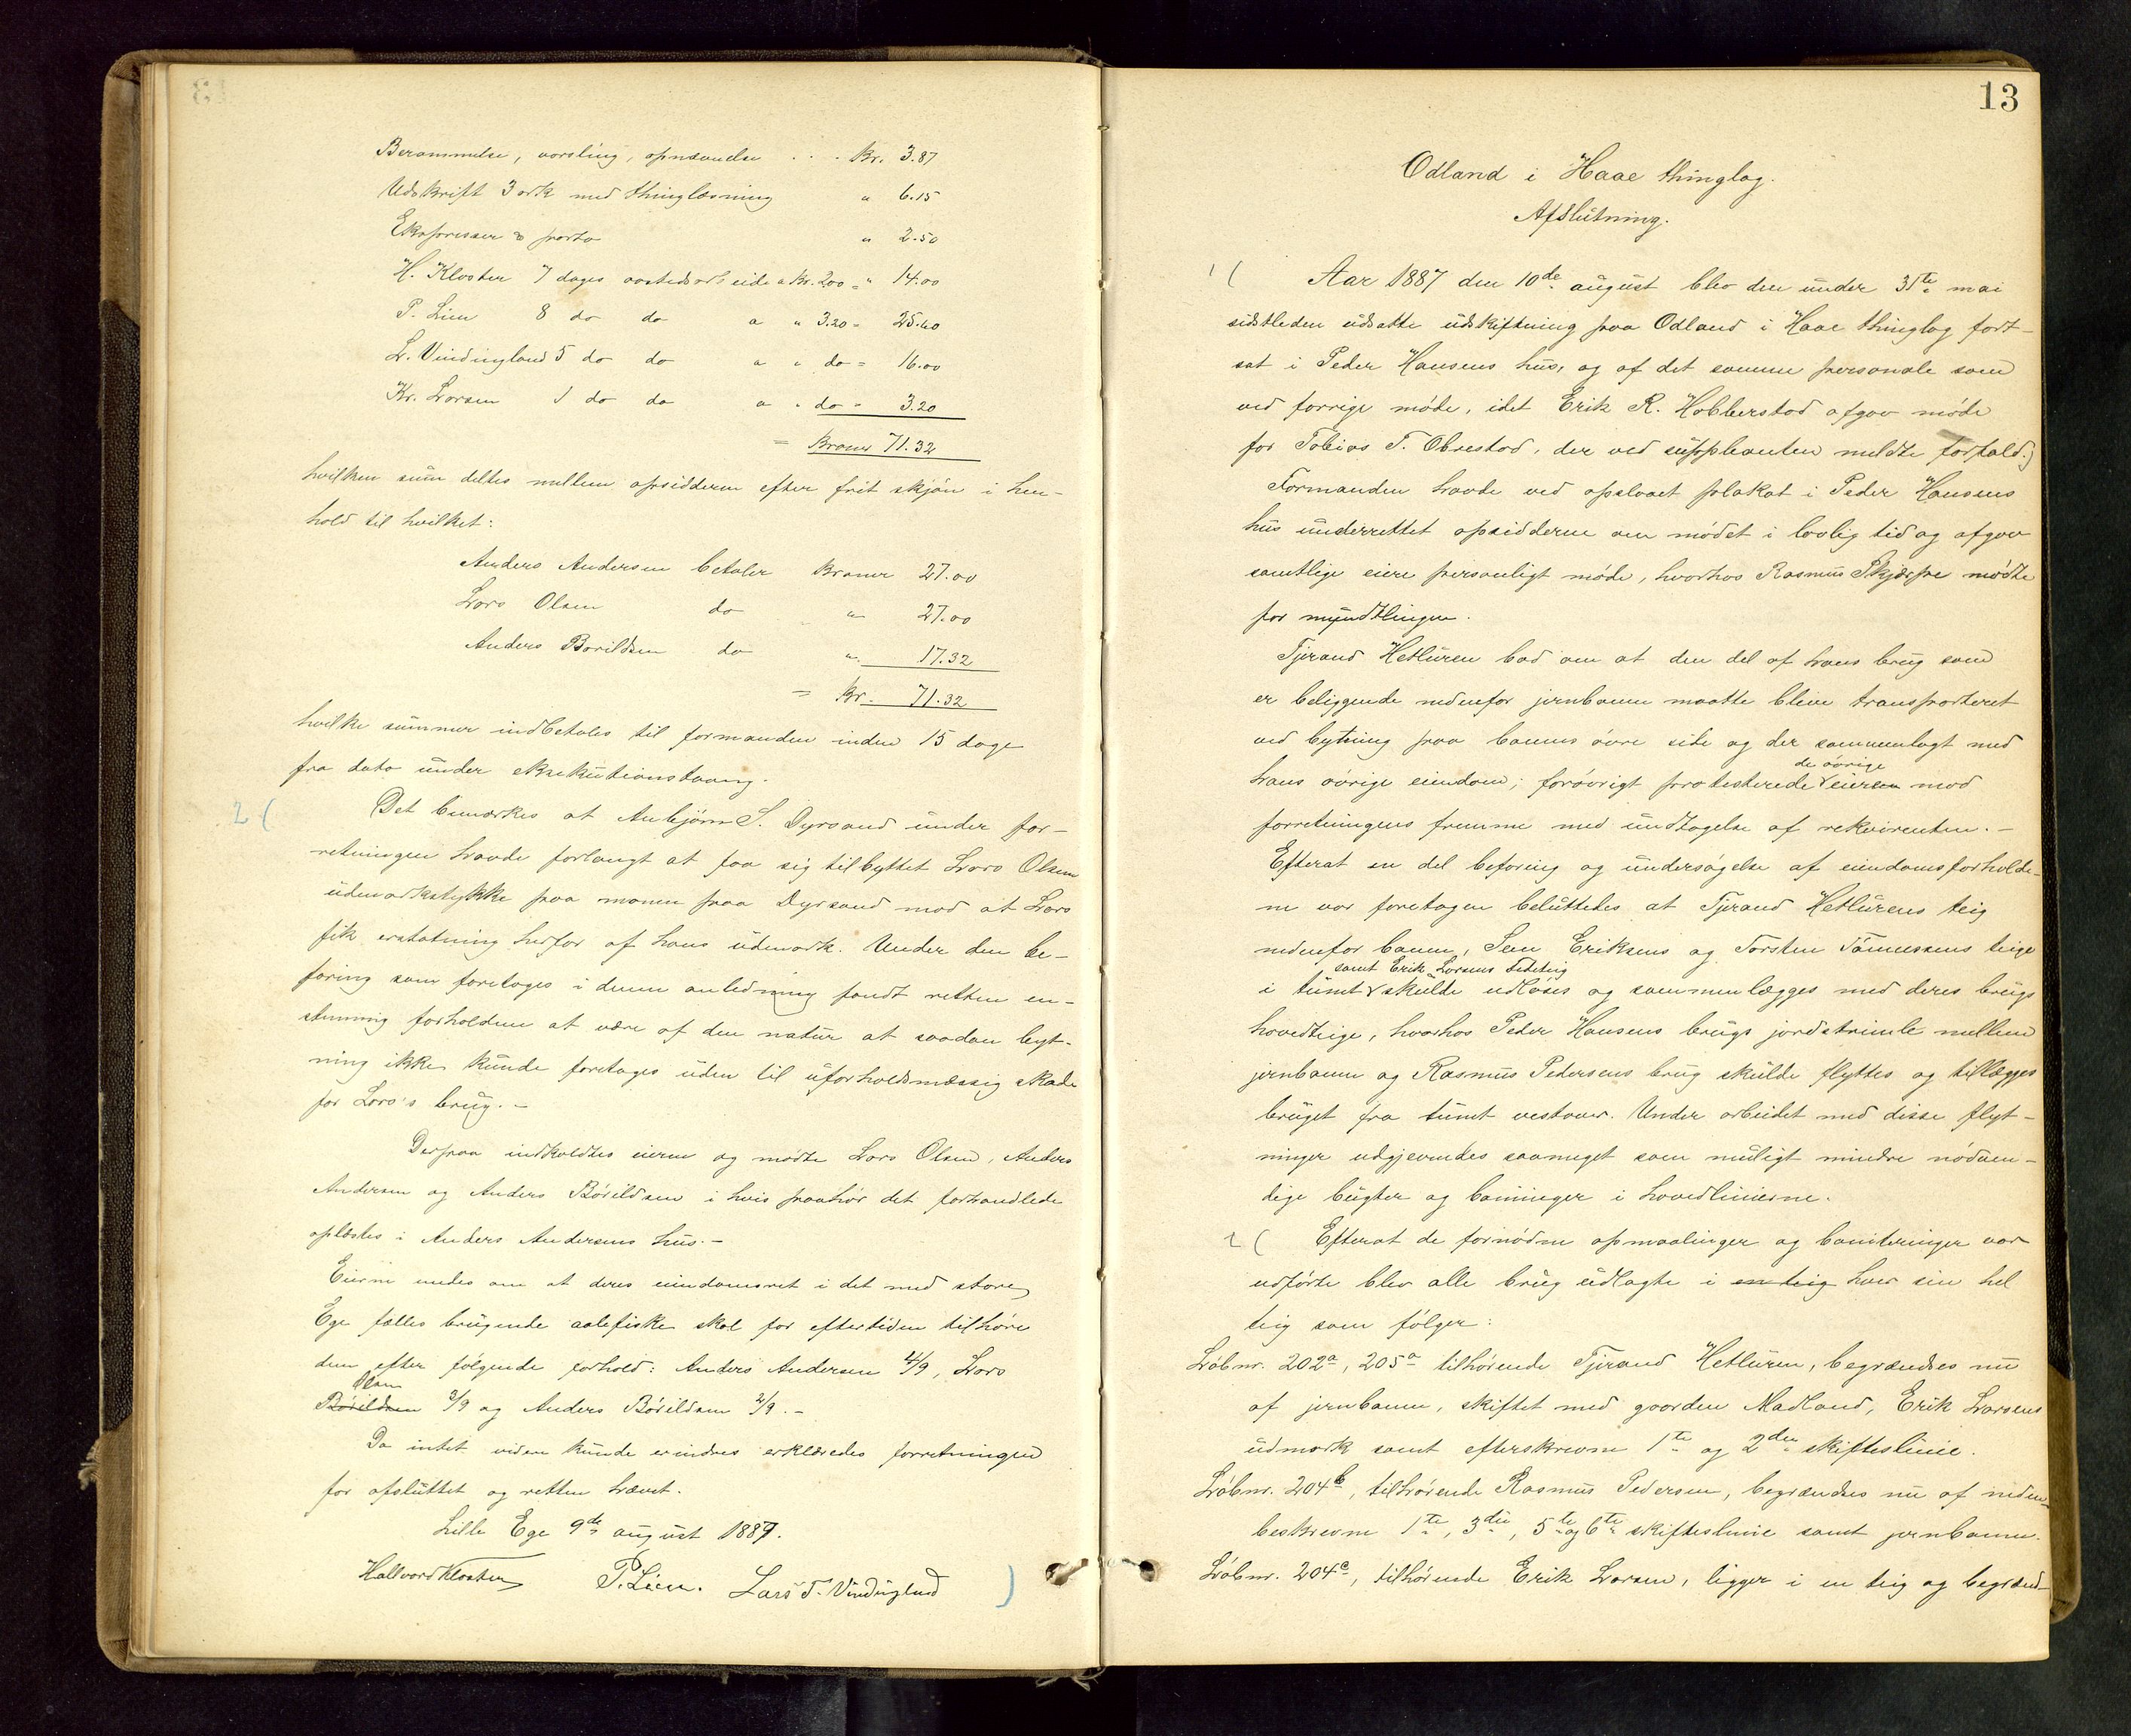 Berammelse, varsling, opnævnelse . . . Kr. 3.87
Udskrift 3 ark med thinglæsning " 6.15
Ekspresser & porto " 2.50
H. Kloster 7 dages aastedsarbeide a Kr. 2.00 = " 14.00
P. Lien 8 do do a " 3.20 = 25.60
L. Vindingland 5 do do a " do = 16.00
Kr. Larsen 1 do do a " do = 3.20
= Kroner 71.32
hvilken sum deltes mellem opsidderne efter frit skjøn i hen-
hold til hvilket:
Anders Andersen betaler Kroner 27.00
Lars Olsen do " 27.00
Anders Børildsen do " 17.32
= Kr. 71.32
hvilke summer indbetales til formanden inden 15 dage
fra dato under eksekutionstvang.
2( Det bemærkes at Anbjørn S. Dyrsand under for-
retningen havde forlangt at faa sig tilbyttet Lars Olsens
udemarkstykke paa monen paa Dyrsand mod at Lars
fik erstatning herfor af hans udmark. Under den be-
faring som foretoges i denne anledning fandt retten en-
stemmig forholdene at være af den natur at saadan byt-
ning ikke kunde foretages uden til uforholdsmæssig skade
for Lars's brug. -
Derpaa indkaldtes eierne og mødte Lars Olsen, Anders
Andersen og Anders Børildsen i hvis paahør det forhandlede
oplæstes i Anders Andersens hus. -
Eierne enedes om at deres eiendomsret i det med store
Ege fælles brugende aalefiske skal for eftertiden tilhøre
dem efter følgende forhold: Anders Andersen 4/9, Lars
Olsen
Børildsen 3/9 og Anders Børildsen 2/9. -
Da intet videre kunde erindres erklæredes forretningen
for afsluttet og retten hævet.
Lille Ege 9de august 1887.
Hallvard Kloster P. Lien. Lars T. Vindingland )
13
Odland i Haae thinglag.
Afslutning.
1( Aar 1887 den 10de august blev den under 31te mai
sidstleden udsatte udskiftning paa Odland i Haae thinglag fort-
sat i Peder Hansens hus, og af det samme personale som
ved forrige møde, idet Erik R. Hobberstad afgav møde
for Tobias T. Obrestad, der ved supplanten meldte forfald.)
Formanden havde ved opslaaet plakat i Peder Hansens
hus underrettet opsidderne om mødet i lovlig tid og afgav
samtlige eiere personligt møde, hvorhos Rasmus Skjærpe mødte
for myndtlingen.
Tjerand Hetluren bad om at den del af hans brug som
er beliggende nedenfor jernbanen maatte blive transporteret
ved bytning paa banens øvre side og der sammenlagt med
de øvrige
hans øvrige eiendom; forøvrigt protesterede eieren mod
forretningens fremme med undtagelse af rekvirenten. -
Efterat en del befaring og undersøgelse af eiendomsforholde-
ne var foretagen besluttedes at Tjerand Hetlurens teig
nedenfor banen, Sem Eriksens og Torsten Tønnessens teige
samt Erik Larsens Fedeteig
i tunet skulde udløses og sammenlægges med deres brugs
hovedteige, hvorhos Peder Hansens brugs jordstrimle mellem
jernbanen og Rasmus Pedersens brug skulde flyttes og tillægges
bruget fra tunet vestover. Under arbeidet med disse flyt-
ninger udgjevnedes saameget som muligt mindre nødven-
dige bugter og bøininger i hovedlinierne.
2( Efterat de fornødne opmaalinger og boniteringer var
udførte blev alle brug udlagte i en teig hver sin hel
teig som følger:
Løbnr. 202a, 205a tilhørende Tjerand Hetluren, begrændses nu
af jernbanen, skiftet med gaarden Madland, Erik Larsens
udmark samt efterskrevne 1te og 2den skifteslinie.
Løbnr. 204b, tilhørende Rasmus Pedersen, begrændses nu af neden-
beskrevne 1te, 3die, 5te og 6te skifteslinie samt jernbanen.
Løbnr. 204c, tilhørende Erik Larsen, ligger i en teig og begrænd-